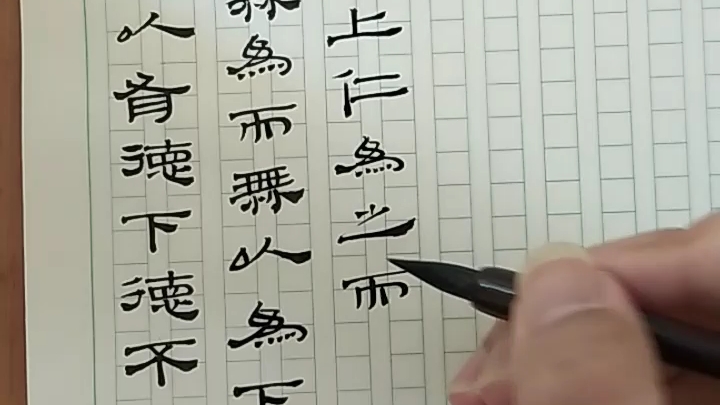 以有德下德不
無為而無以為下
上仁為之而